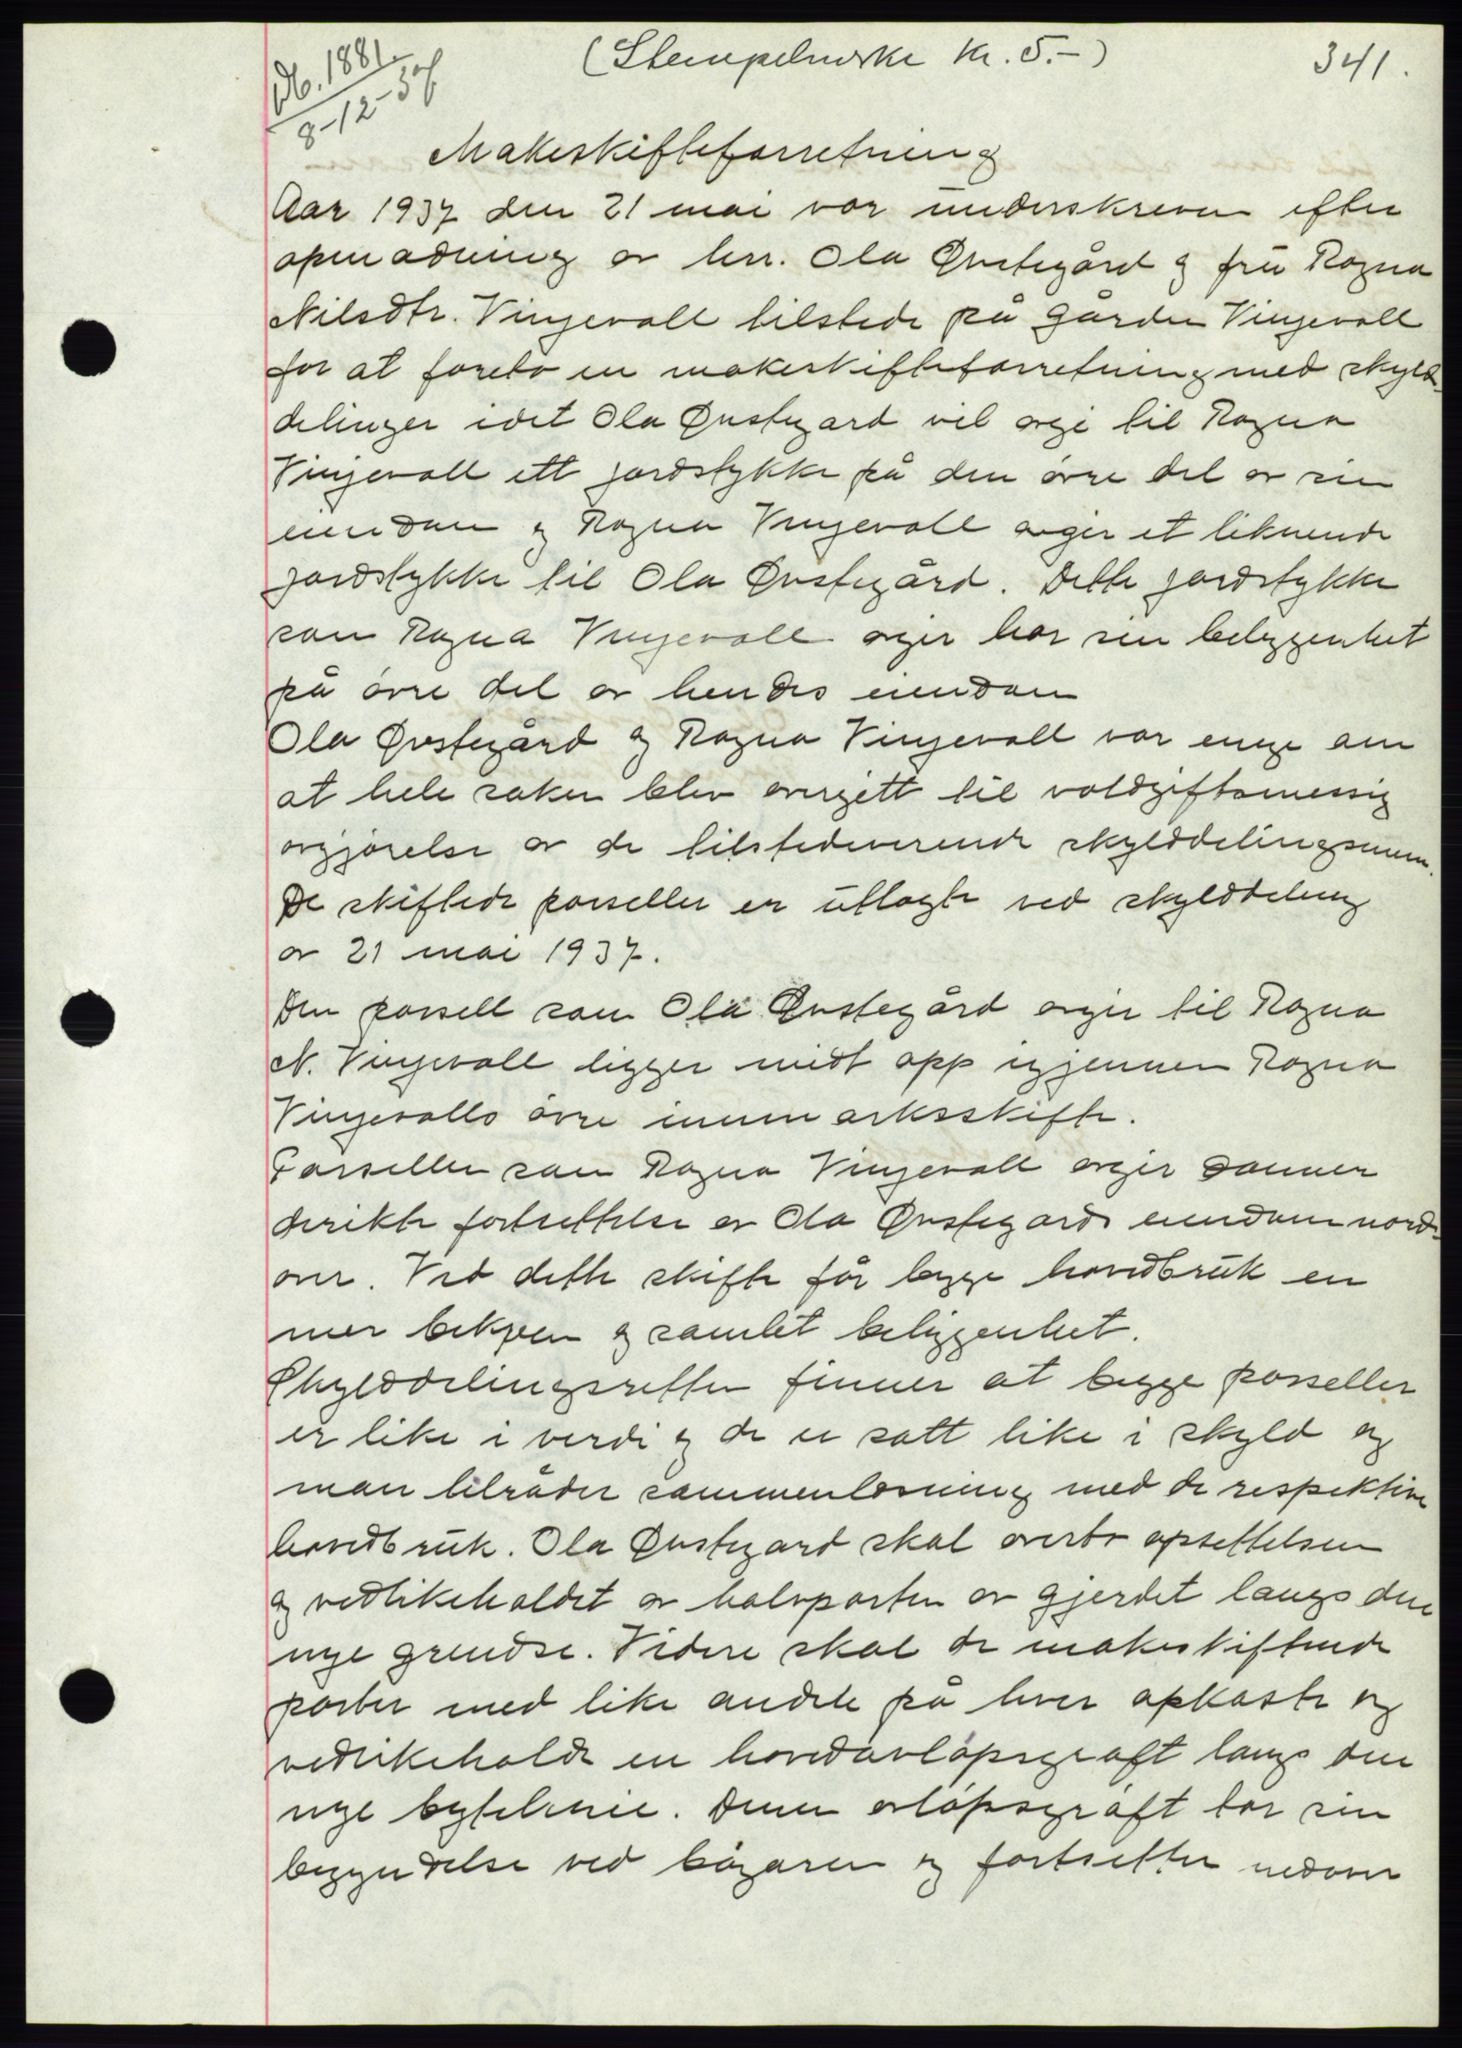 (Stempelmerke kr. 5.-)
341.
Nb. 1881
8-12-37
Makeskifteforretning
Aar 1937 den 21 mai var underskreven efter
opmodning av herr. Ola Øvstegård og fru Ragna
Nilsdtr. Vinjevoll tilstede på gården Vinjevoll
for at foreta en makeskifteforretning med skyld-
delinger idet Ola Øvstegard vil avgi til Ragna
Vinjevoll ett jordstykke på den øvre del av sin
eiendom og Ragna Vinjevoll avgir et liknende
jordstykke til Ola Øvstegård. Dette jordstykke
som Ragna Vinjevoll avgir har sin beliggenhet
på øvre del av hendes eiendom
Ola Øvstegård og Ragna Vinjevoll var enige om
at hele saken blev overgitt til voldgiftsmessig
avgjørelse av de tilstedeverende skylddelingsmenn.
De skiftede parseller er utlagte ved skylddeling
av 21 mai 1937.
Den parsell som Ola Øvstegård avgir til Ragna
N. Vinjevoll ligger midt opp igjennem Ragna
Vinjevolls øvre innmarksskifte.
Parsellen som Ragna Vinjevoll avgir danner
direkte fortsettelse av Ola Øvstegards eiendom nord-
over. Ved dette skifte får begge hovedbruk en
mer bekvem og samlet beliggenhet.
Skylddelingsretten finner at begge parseller
er like i verdi og de er satt like i skyld og
man tilråder sammenløsning med de respektive
hovedbruk. Ola Øvstegard skal overta opsettelsen
og vedlikeholdet av halvparten av gjerdet langs den
nye grendse. Videre skal de makeskiftende
parter med like andele på hver opkaste og
vedlikeholde en hovedavløpsgrøft langs den
nye bytelinie. Denne avløpsgrøft tar sin
begyndelse ved bøgaren og fortsetter nedover